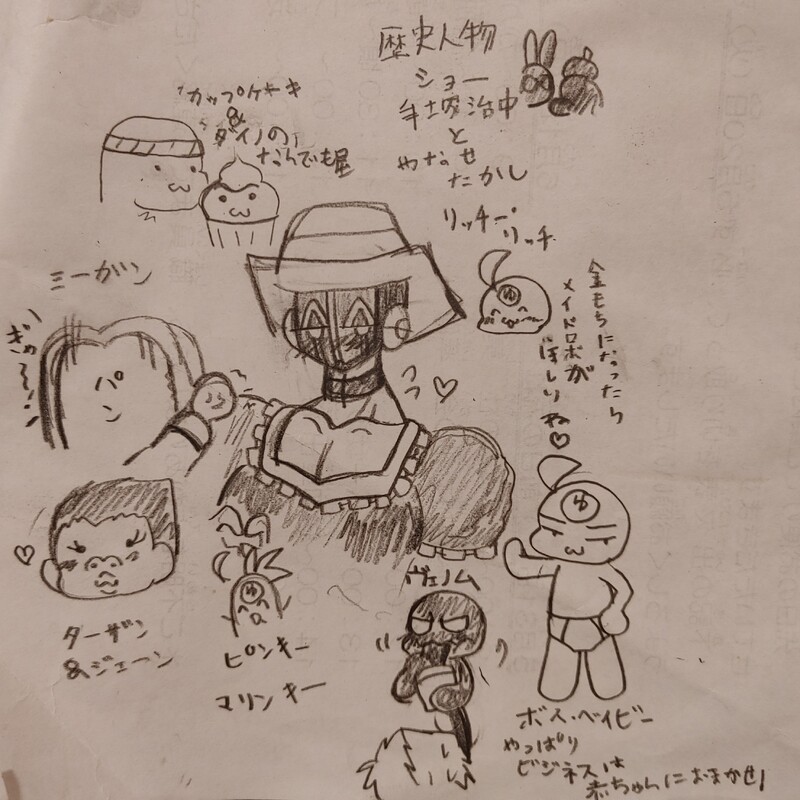 歴史人物
ショー
手塚治虫
と
やなせ
たかし
カップケーキ
&
ダイノの
なんでも屋
リッチー・
リッチ
ゆ
金もちになったら
メイドロボが
ほしいね♡
ミーガン
ぎゃー
パン
ターザン
&ジェーン
ゆ
ピンキー
マリンキー
ヴェノム
ゆ
ボス・ベイビー
やっぱり
ビジネスは
赤ちゃんにおまかせ!